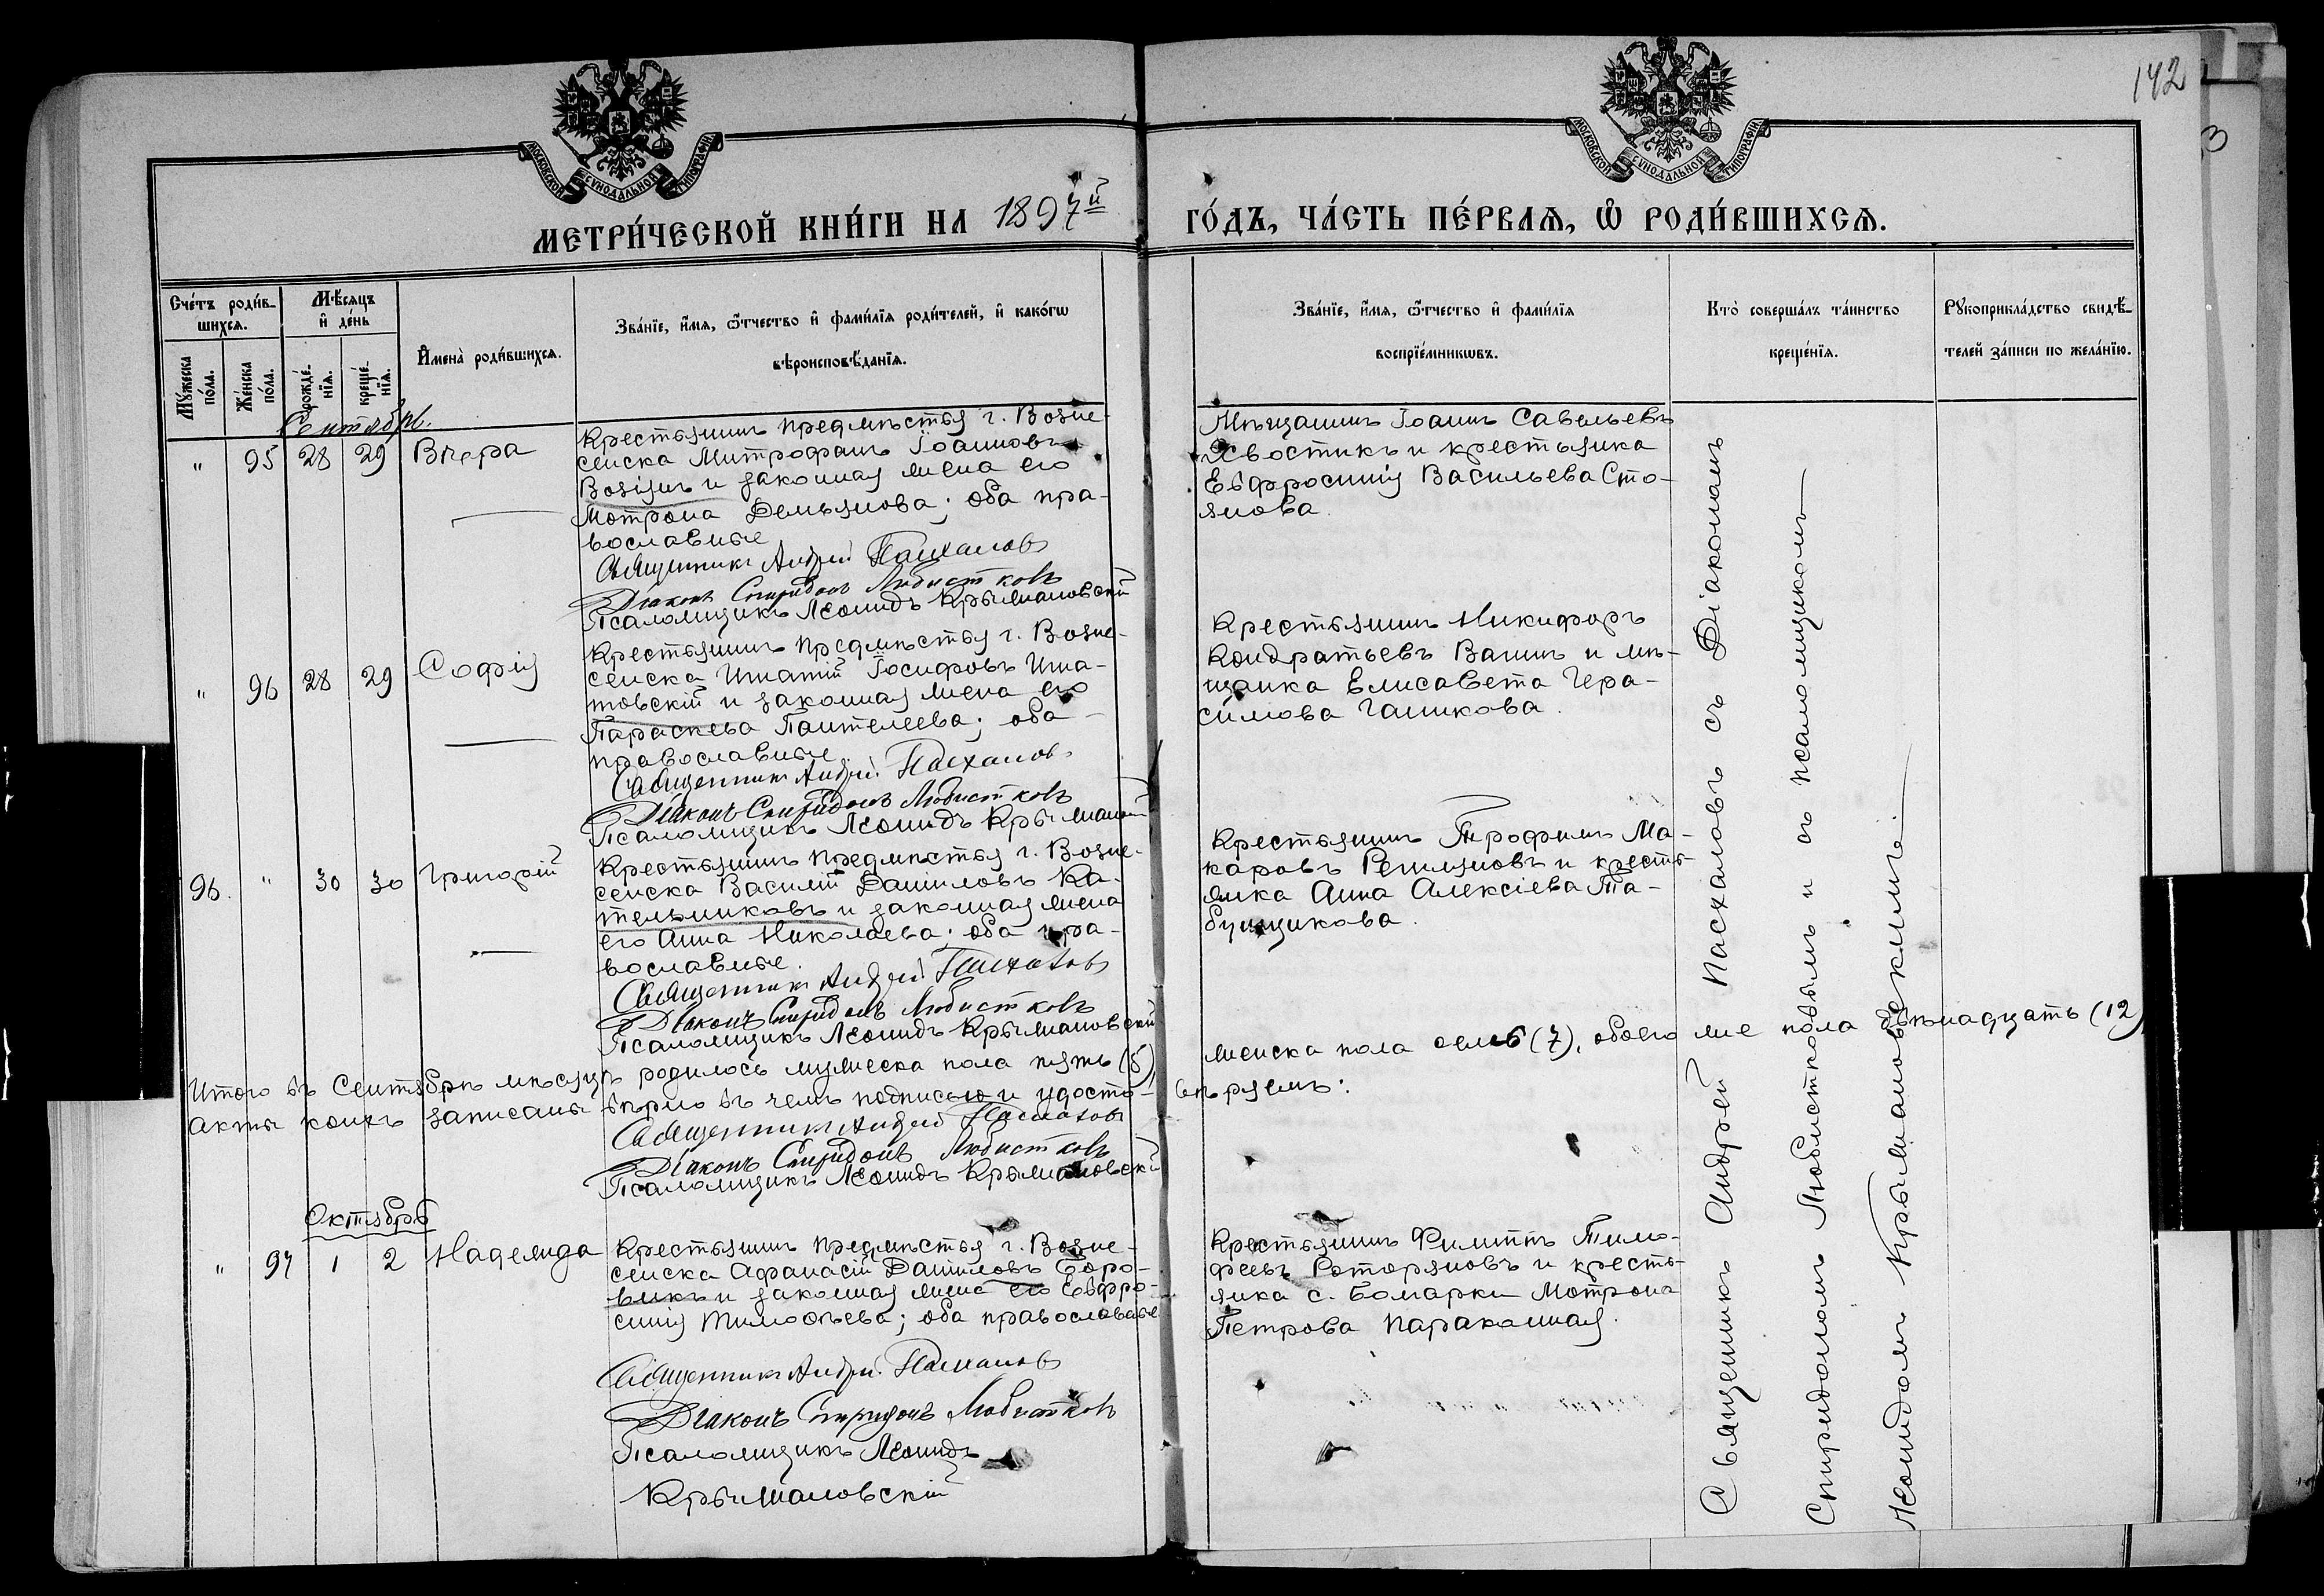 142
МОСКОВСКОЙ СѴНОДАЛЬНОЙ ТИПОГРАФІИ
МОСКОВСКОЙ СѴНОДАЛЬНОЙ ТИПОГРАФІИ
МЕТРИ́ЧЕСКОЙ КНИ́ГИ НА 1897й
ГО́ДЪ, ЧА́СТЬ ПЕ́РВАѦ, Ѽ РОДИ́ВШИХСѦ.
Сче́тъ роди́в-
шихсѧ.
Мꙋ́жеска по́ла.
Же́нска по́ла.
Мѣ́сѧцъ
и҆ де́нь
рожде́-
нїѧ.
креще́-
нїѧ.
И҆мена̀ роди́вшихсѧ.
Зва́нїе, и҆́мѧ, ѻ҆́тчество и҆ фами́лїѧ роди́телей, и҆ како́гѡ
вѣроисповѣ́данїѧ.
Зва́нїе, и҆́мѧ, ѻ҆́тчество и҆ фами́лїѧ
воспрїе́мникѡвъ.
Кто̀ соверша́лъ та́инство
креще́нїѧ.
Рꙋкоприкла́дство свидѣ́-
телей за́писи по жела́нїю.
Сентябрь.
" 95 28 29 Вѣра
Крестьянинъ предмѣстья г. Возне-
сенска Митрофанъ Іоанновъ
Возіянъ и законная жена его
Мотрона Демьянова; оба пра-
вославные
Священникъ Андрей Пасхаловъ
Діаконъ Спиридонъ Любистковъ
Псаломщикъ Леонидъ Крыжановскій
Мѣщанинъ Іоаннъ Савельевъ
Хвостикъ и крестьянка
Евфросинія Васильева Сто-
янова.
" 96 28 29 Софія
Крестьянинъ предмѣстья г. Возне-
сенска Игнатій Іосифовъ Игна-
товскій и законная жена его
Параскева Пантелеева; оба
православные
Священникъ Андрей Пасхаловъ
Діаконъ Спиридонъ Любистковъ
Псаломщикъ Леонидъ
Крестьянинъ Никифоръ
Кондратьевъ Ванинъ и мѣ-
щанка Елисавета Гера-
симова Ганикова.
96. " 30 30 Григорій
Крестьянинъ предмѣстья г. Возне-
сенска Василій Даніиловъ Ка-
тельниковъ и законная жена
его Анна Николаева; оба пра-
вославные.
Священникъ Андрей Пасхаловъ
Діаконъ Спиридонъ Любистковъ
Псаломщикъ Леонидъ Крыжановскій
Крестьянинъ Трофимъ Ма-
каровъ Решияновъ и кресть-
янка Анна Алексіева Та-
бунщикова.
Итого въ Сентябрѣ мѣсяцѣ родилось мужеска пола пять (5), женска пола семь (7), обоего же пола двѣнадцать (12)
Акты коихъ записаны вѣрно въ чемъ подписью и удосто-вѣряемъ:
Священникъ Андрей Пасхаловъ
Діаконъ Спиридонъ Любистковъ
Псаломщикъ Леонидъ Крыжановскій
Октябрь
" 97 1 2 Надежда
Крестьянинъ предмѣстья г. Возне-
сенска Афанасій Даніиловъ Боро-
викъ и законная жена его Евфро-
синія Тимоѳеева; оба православные
Священникъ Андрей Пасхаловъ
Діаконъ Спиридонъ Любистковъ
Псаломщикъ Леонидъ
Крыжановскій
Крестьянинъ Филиппъ Тимо-
феевъ Роторяновъ и кресть-
янка с. Болгарки Мотрона
Петрова Параконная.
Священникъ Андрей Пасхаловъ съ Діакономъ
Спиридономъ Любистковымъ и съ псаломщикомъ
Леонидомъ Крыжановскимъ